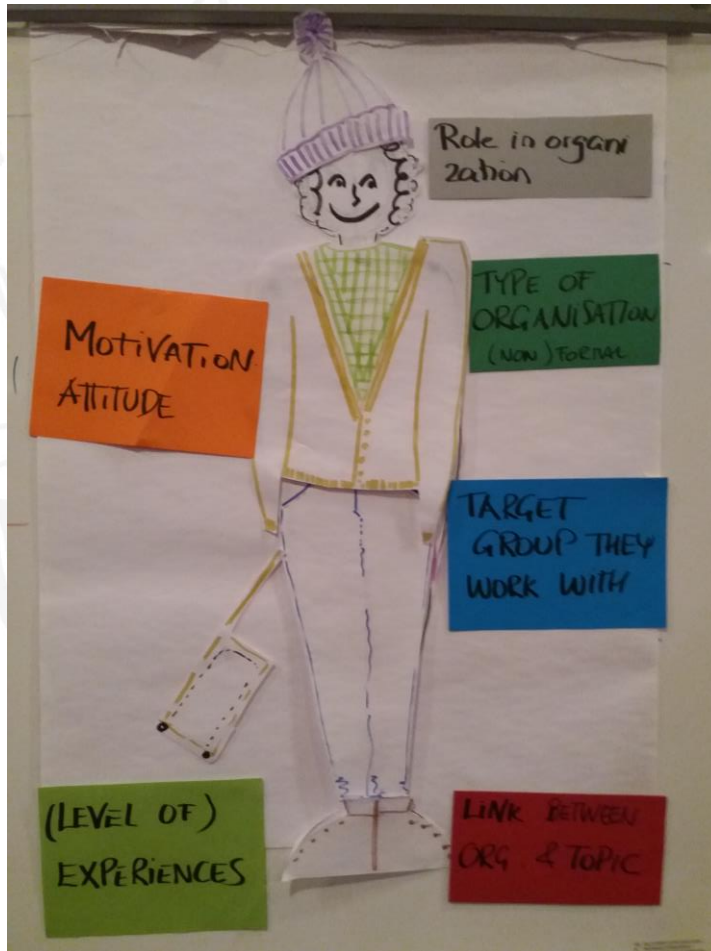 Role in organi
zation
TYPE OF
ORGANISATION
(NON) FORMAL
MOTIVATION
ATTITUDE
TARGET
GROUP THEY
WORK WITH
(LEVEL OF)
EXPERIENCES
LINK BETWEEN
ORG & TOPIC